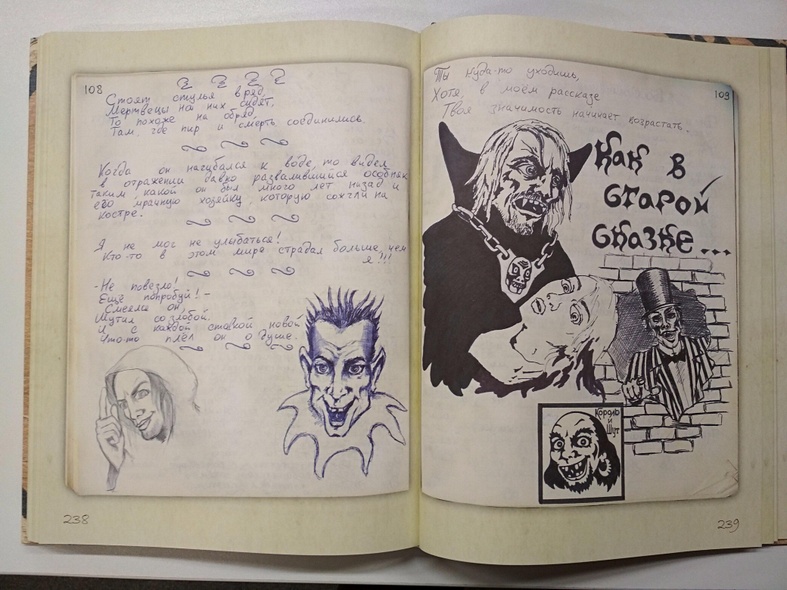 108
Стоят стулья в ряд,
Мертвецы на них сидят,
То похоже на обряд,
Там, где пир и смерть соединились.
Когда он нагибался к воде, то видел
в отражении давно развалившийся особняк
таким, какой он был много лет назад и
его мрачную хозяйку, которую сожгли на
костре.
Я не мог не улыбаться!
Кто-то в этом мире страдал больше, чем
я!!!
-Не повезло!
Ещё попробуй! -
Смеялся он,
Шутил со злобой.
И с каждой ставкой новой
Что-то плёл он о душе.
238
Ты куда-то уходишь,
Хотя, в моём рассказе
Твоя значимость начинает возрастать.
109
Как в
старой
сказке...
Король
и
Шут
239